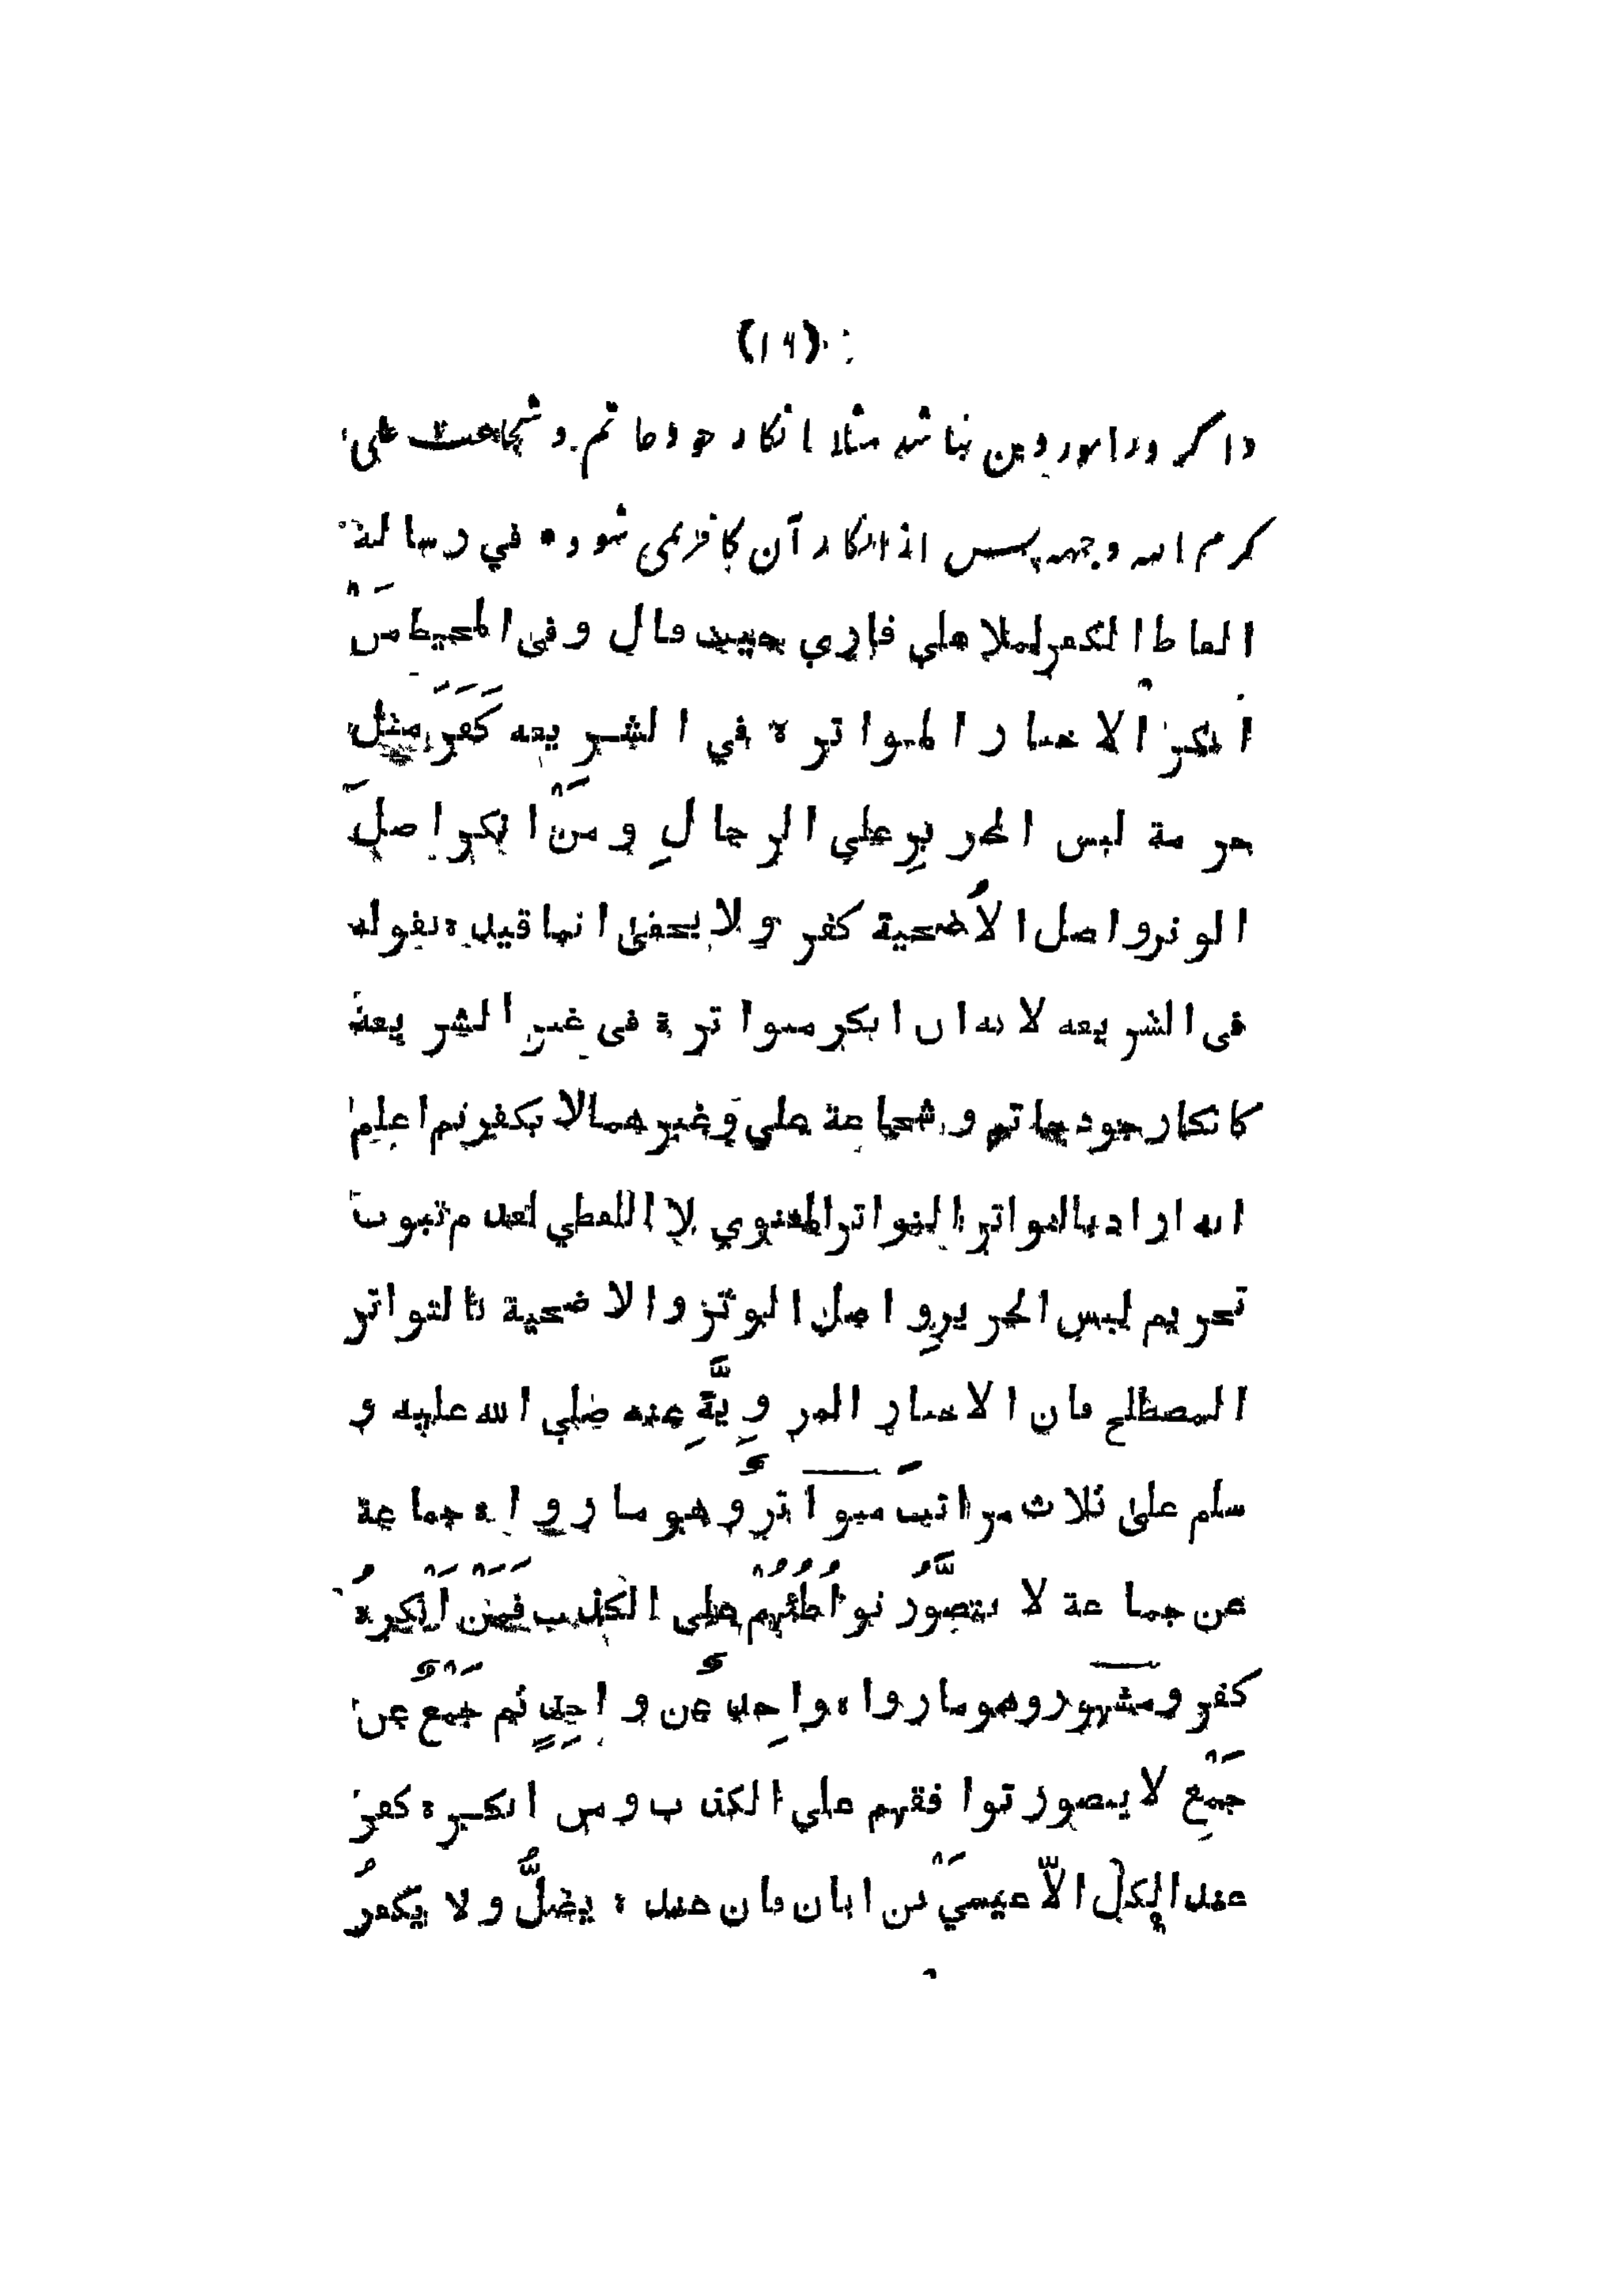 (١٦)
و اگر در امور دین نباشد مثلا انکار جود حاتم و شجاعت علی
کرم الله وجهه پس از انکار آن کافر نمی شود * في رسالة
الفاظ الكفر لملا علي قاري حيث قال وفى المحيط مَنْ
انكر الاخبار المتواترة في الشريعة كَفَرَ مثل
حرمة لبس الحرير على الرجالِ ومَنْ انكر اصلَ
الوتر و اصل الاُضحية كفر ولا يخفى انما قيده بقوله
فى الشريعة لانه ان انكر متواترة فى غير الشريعة
كانكار جود حاتم و شجاعة علي وغيرهما لا يكفر ثم اعلم
انه اراد بالتواتر التواتر المعنوي لا اللفظي لعدم ثبوت
تحريم لبس الحريرِ و اصل الوتر والاضحية بالتواتر
المصطلح فان الاخبار المروِيَّةِ عنه صلى الله عليه و
سلم على ثلاث مراتبَ متواترٌ وهو ما رواه جماعة
عن جماعة لا يتصوَّرُ تواطُئُهُمْ على الكذب فَمَنْ اَنْكرهُ
كفر ومشهور وهو ما رواه واحِدٌ عن واحِدٍ ثم جَمْعٌ عن
جَمْعٍ لا يتصور توافقهم على الكذب ومن انكره كفر
عند الكلِّ الاّ عيسىَ بْن ابان فان عنده يضلُّ ولا يكفرُ